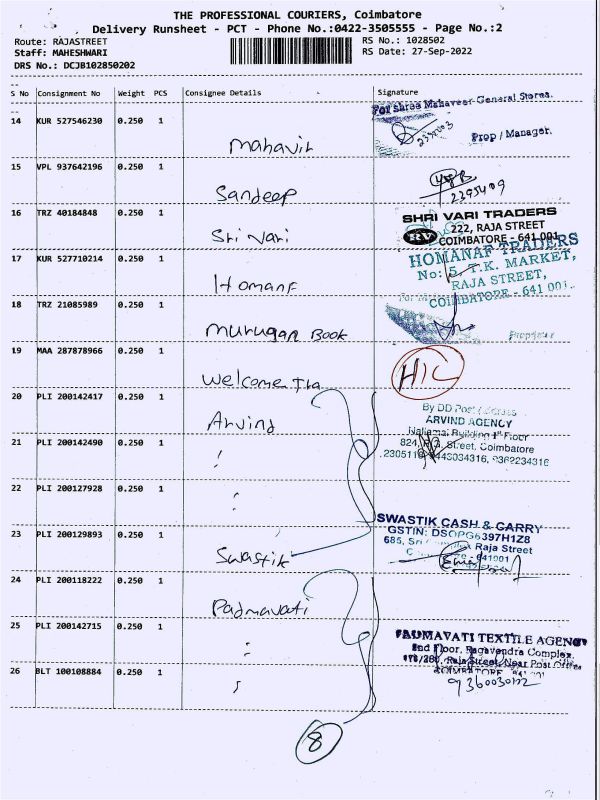 THE PROFESSIONAL COURIERS, Coimbatore
Delivery Runsheet - PCT - Phone No.:0422-3505555 - Page No.:2
Route: RAJASTREET RS No.: 1028502
Staff: MAHESHWARI RS Date: 27-Sep-2022
DRS No.: DCJB102850202
S No Consignment No Weight PCS Consignee Details Signature
For Shree Mahaveer General Stores.
14 KUR 527546230 0.250 1
Prop / Manager.
Mahavir
15 VPL 937642196 0.250 1
Sandeep
16 TRZ 40184848 0.250 1
SHRI VARI TRADERS
222, RAJA STREET
Sri Vari COIMBATORE - 641 001
17 KUR 527710214 0.250 1
HOMANAF TRADERS
No: 5, T.K. MARKET,
RAJA STREET,
Homanf
COIMBATORE - 641 001.
18 TRZ 21085989 0.250 1
Murugan Book
Proprietor
19 MAA 287878966 0.250 1
Welcome Tra
20 PLI 200142417 0.250 1
Arvind
ARVIND AGENCY
Building 1st Floor
21 PLI 200142490 0.250 1
Street, Coimbatore
9362234316
22 PLI 200127928 0.250 1
SWASTIK CASH & CARRY
23 PLI 200129893 0.250 1
685, Raja Street
Swastik
24 PLI 200118222 0.250 1
Padmavati
25 PLI 200142715 0.250 1
PADMAVATI TEXTILE AGENCY
2nd Floor, Ragavendra Complex,
Raja Street, Near Post Office
26 BLT 100108884 0.250 1
8